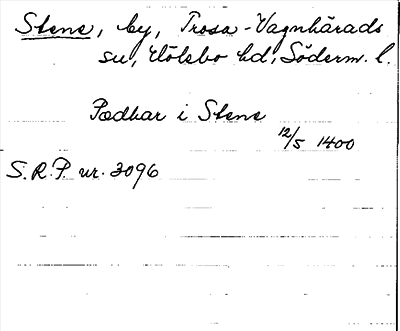 Stene, by, Trosa-Vagnhärads
sn, Hölebo hd, Söderm. l.
Pædhar i Stene
12/5 1400
S.R.P. nr. 3096